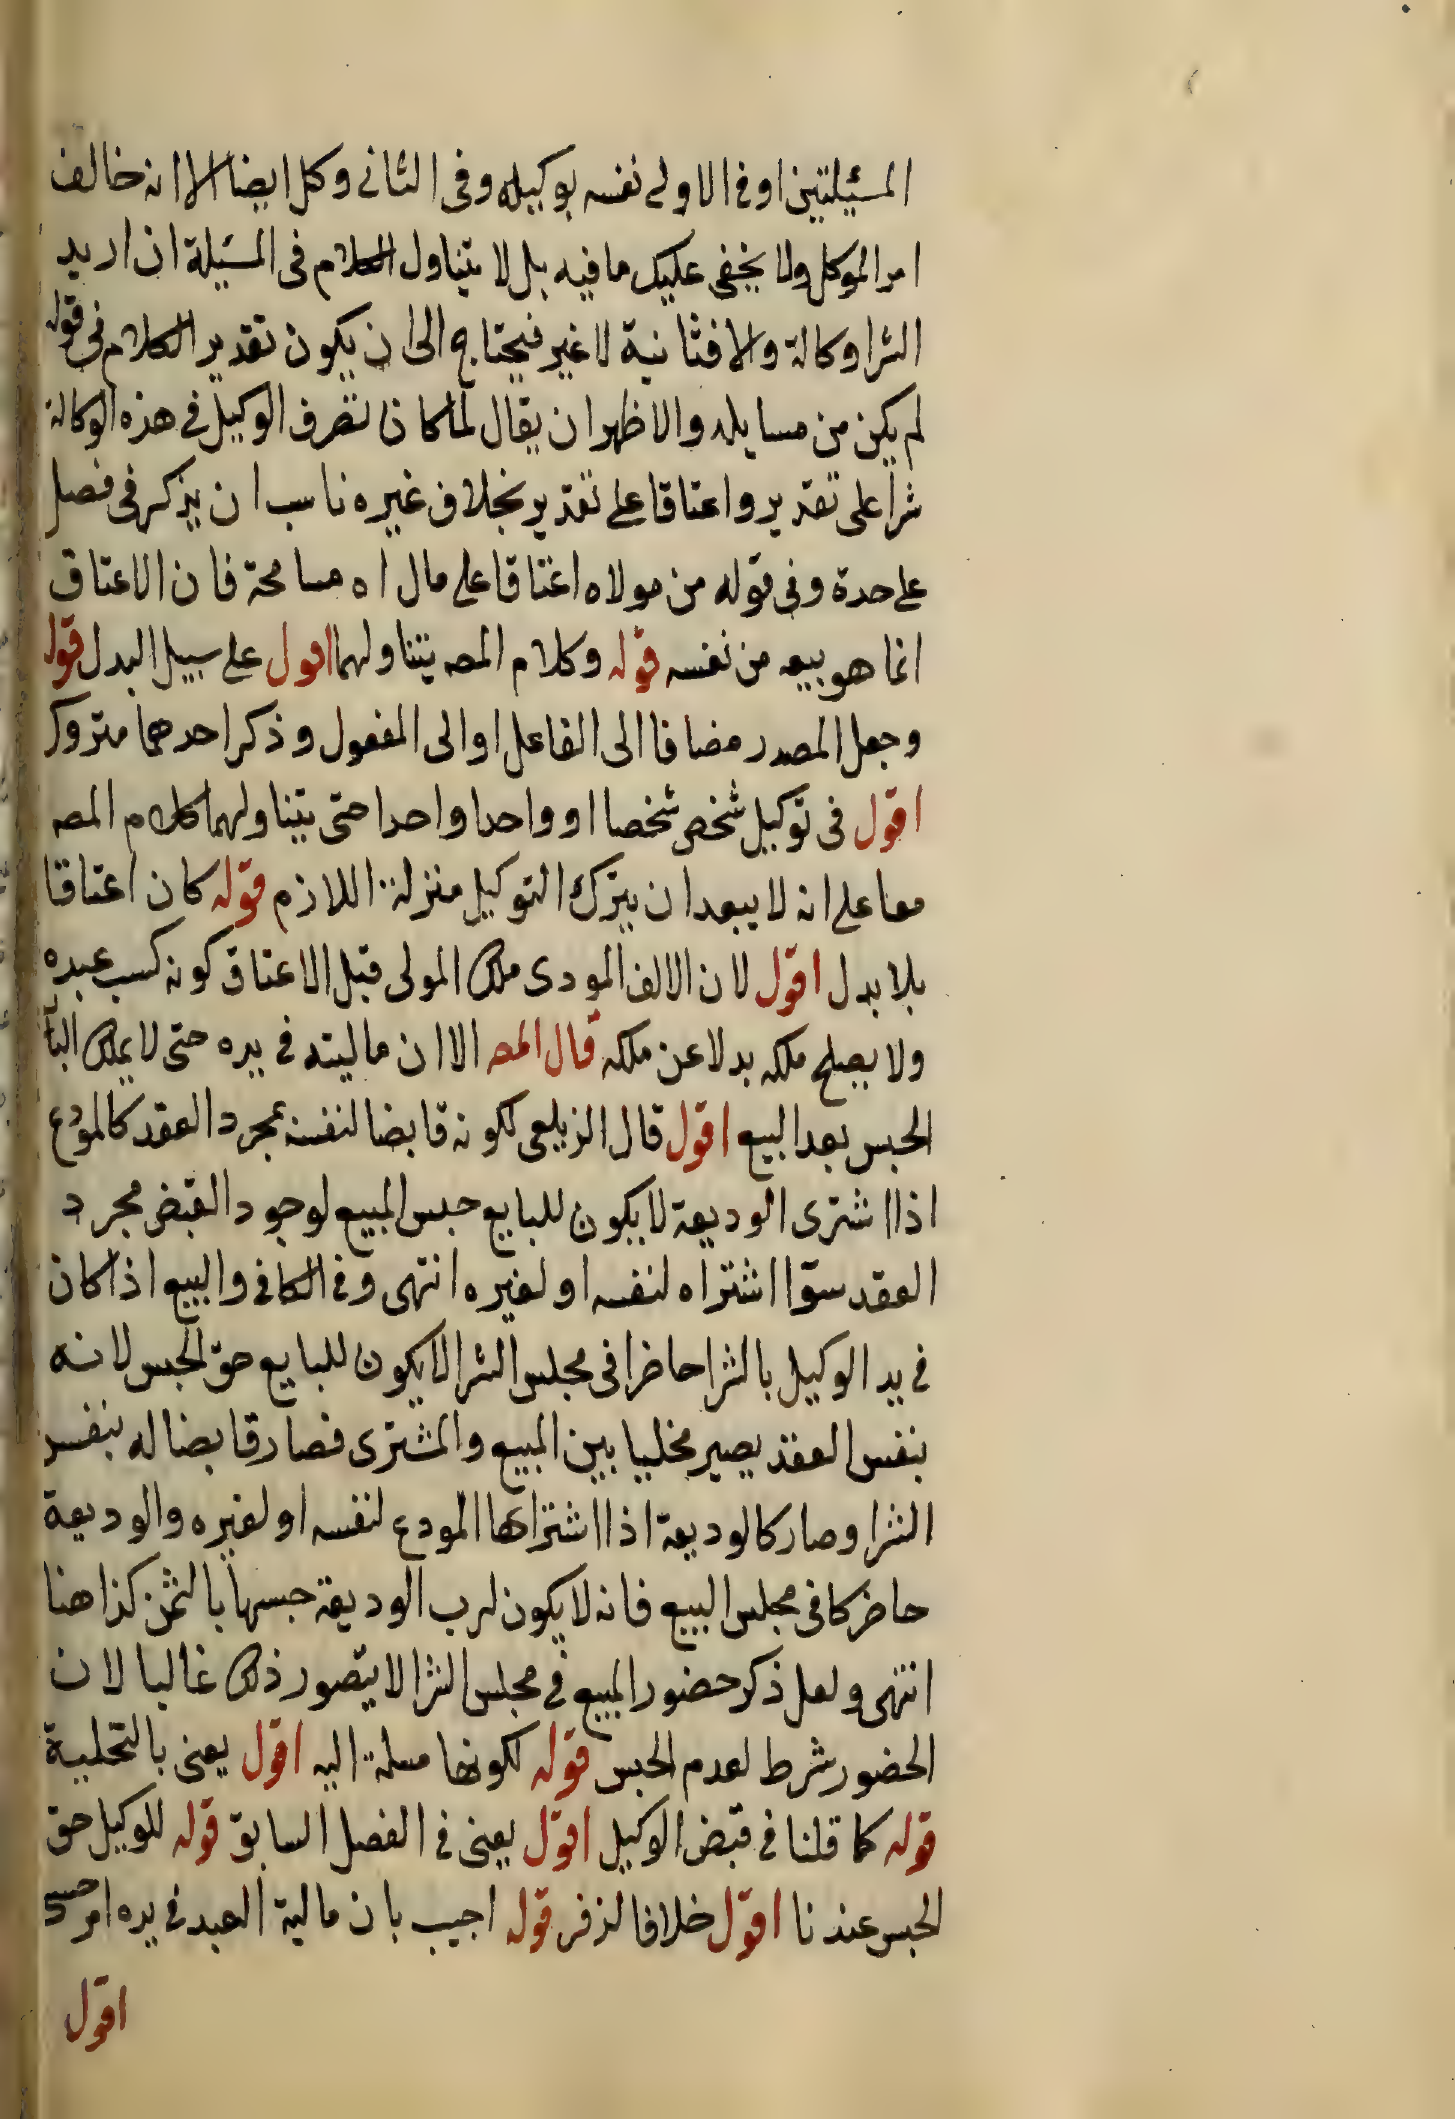 المسئيلتين او في الاولى نفسه بوكيله وفى الثانى وكل ايضا الا انه خالف
امر الموكل ولا يخفى عليك ما فيه بل لا يتناول الكلام فى المسئيلة ان اريد
الشرا وكالة والا فثانية لا غير فيحتاج الى ان يكون تقدير الكلام فى قوله
لم يكن من مسايله والاظهر ان يقال لما كان تصرف الوكيل فى هذه الوكالة
شرا على تقدير واعتاقا على تقدير بخلاف غيره ناسب ان يذكر فى فصل
على حدة وفى قوله من مولاه اعتاقا على مال اه مسامحة فان الاعتاق
انما هو بيعه من نفسه قوله وكلام المصه يتناولهما اقول على سبيل البدل قوله
وجعل المصدر مضافا الى الفاعل او الى المفعول وذكر احدهما متروك
اقول فى توكيل شخص شخصا او واحدا واحدا حتى يتناولهما كلام المصه
معا على انه لا يبعد ان يترك التوكيل منزلة اللازم قوله كان اعتاقا
بلا بدل اقول لان الالف المودى ملك المولى قبل الاعتاق كونه كسب عبده
ولا يصلح ملكه بدلا عن ملكه قال المصه الا ان ماليته في يده حتى لا يملك البا
الحبس بعد البيع اقول قال الزيلعى لكونه قابضا لنفسه بمجرد العقد كالمودع
اذا اشترى الوديعة لا يكون للبايع حبس المبيع لوجود القبض مجرد
العقد سوّا اشتراه لنفسه او لغيره انتهى وفى الكافى والبيع اذا كان
في يد الوكيل بالشرا حاضرا فى مجلس الشرا لا يكون للبايع حق الحبس لانه
بنفس العقد يصير مخليا بين المبيع والمشترى فصار قابضا له بنفس
الشرا وصار كالوديعة اذا اشتراها المودع لنفسه او لغيره والوديعة
حاضر كا فى مجلس البيع فانه لا يكون لرب الوديعة حبسها بالثمن كذا هنا
انتهى ولعل ذكر حضور المبيع في مجلس الشرا لا يتصور ذلك غالبا لان
الحضور شرط لعدم الحبس قوله لكونها مسلمة اليه اقول يعنى بالتخلية
قوله كما قلنا فى قبض الوكيل اقول يعنى فى الفصل السابق قوله للوكيل حق
الحبس عندنا اقول خلافا لزفر قوله اجيب بان مالية العبد في يده امر حسى
اقول